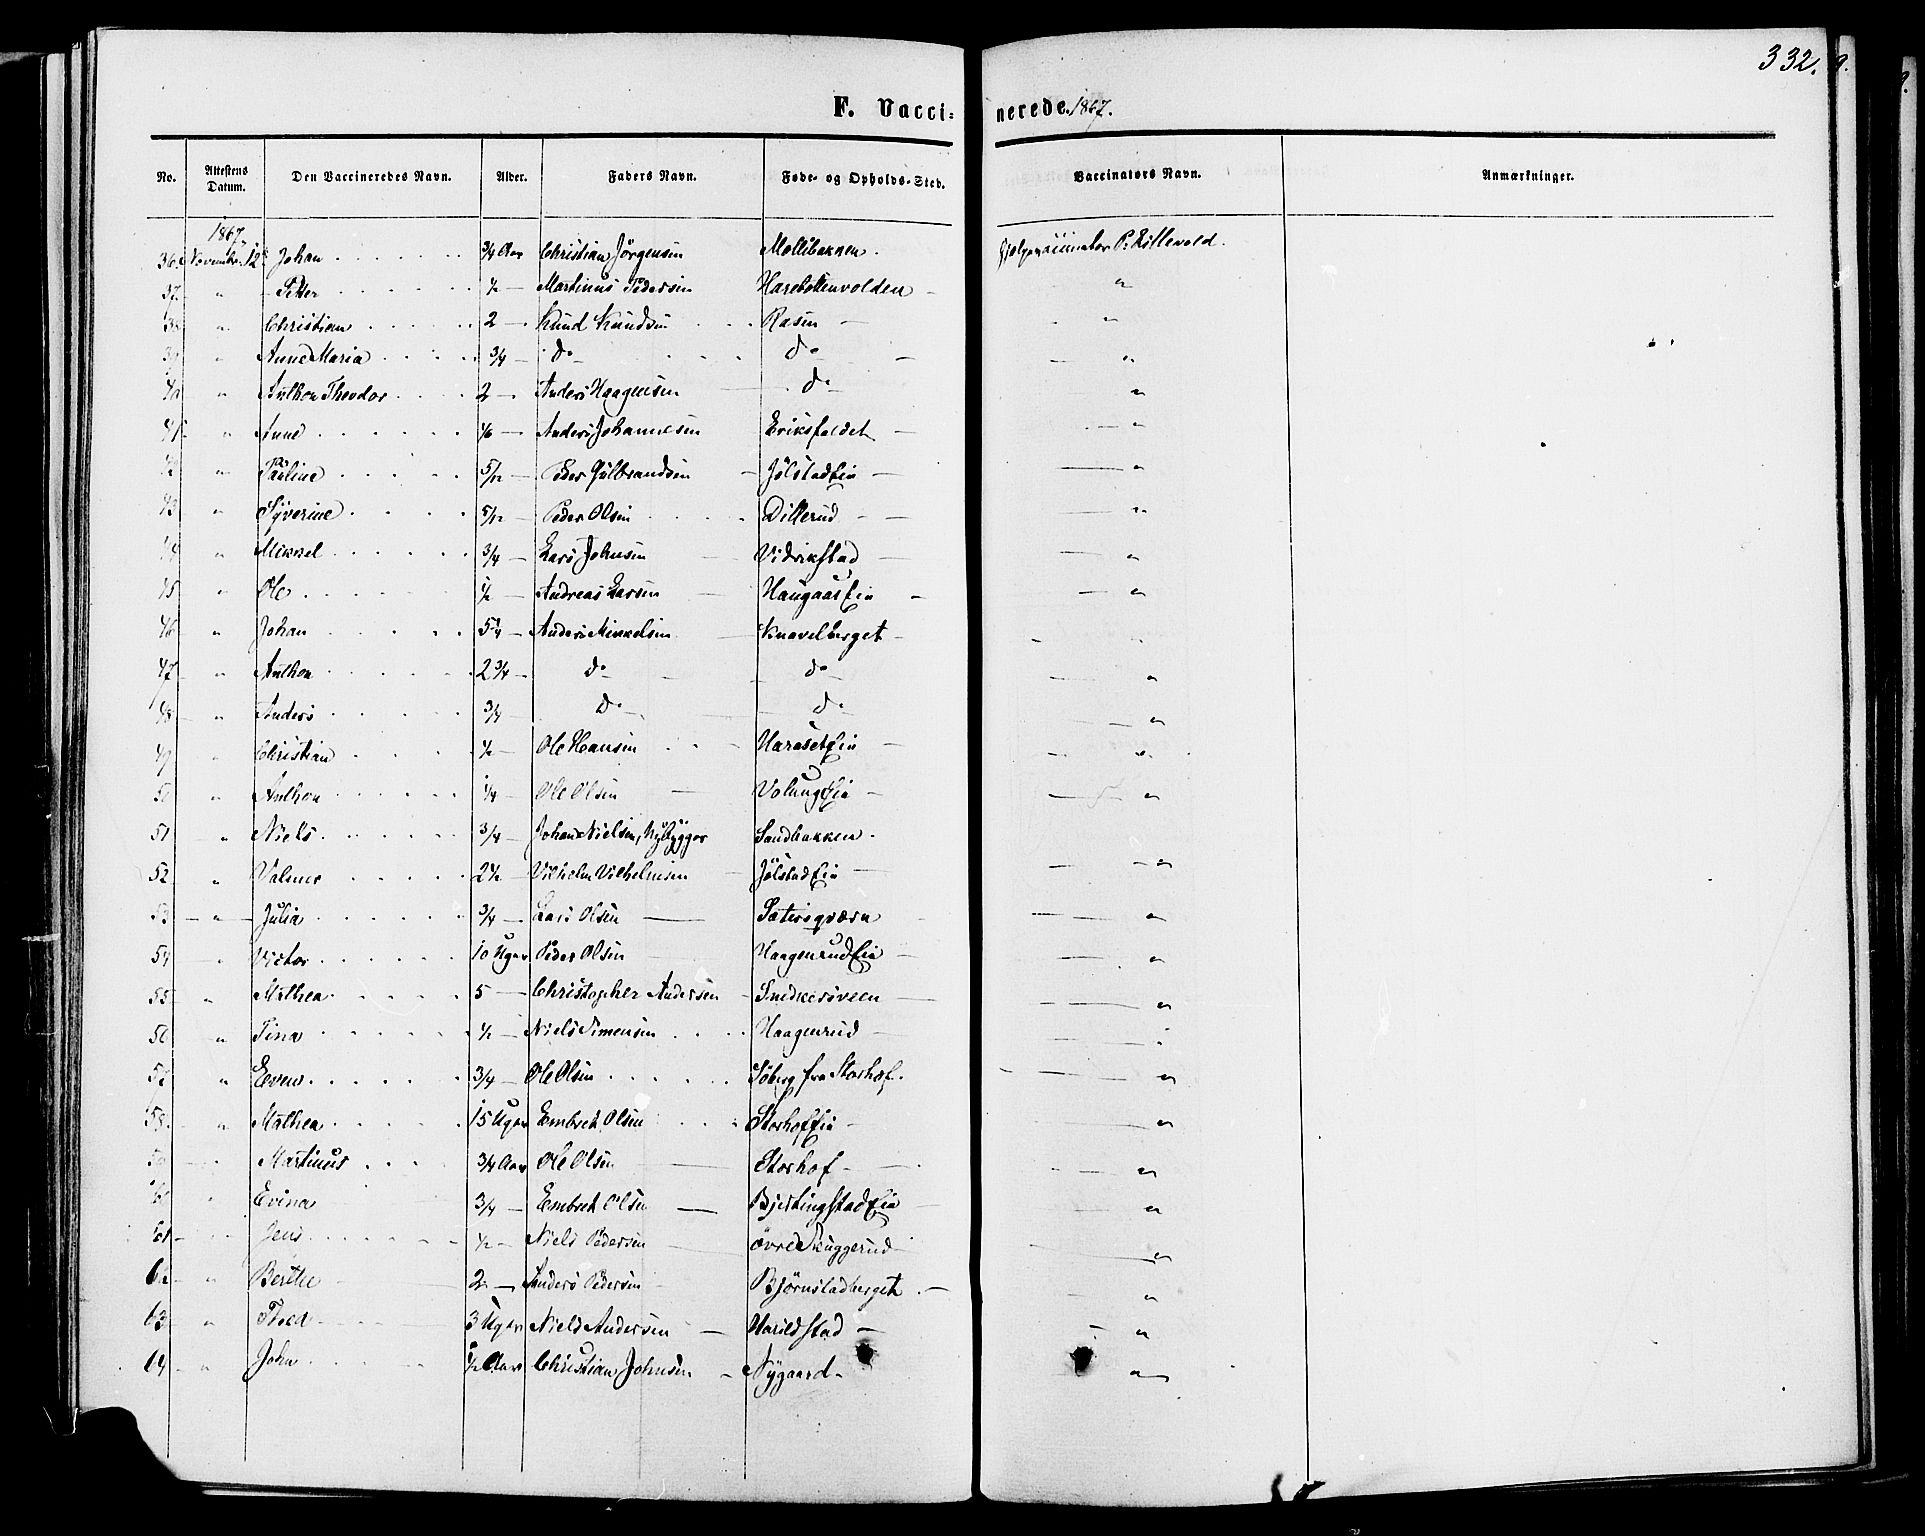 332.
F. Vaccinerede. 1867.
No. Attestens Datum. Den Vaccineredes Navn. Alder. Faders Navn. Føde- og Opholds-Sted. Vaccinators Navn. Anmærkninger.
1867
36. November 12 Johan 3/4 Aar Christian Jörgensen Möllibakken P. Lillevold.
37. " Petter 1/2 Martinus Pedersen "
38 " Christian 2 Knud Knudsen Rasen "
39 " Anne Maria 3/4 do do "
40 " Anthon Theodor 2 Anders Haagensen do "
41 " Anne 1/6 Anders Johannesen Eriksfaldet "
42 " Pauline 5/12 Peder Gulbrandsen Jölstadeie "
43 " Syverine 5/12 Peder Olsen Dillerud "
44 " Mikkel 3/4 Lars Johnsen Vidrikstad "
45 " Ole 1/2 Andreas Larsen Haugaaseie "
46 " Johan 5 1/4 Anders Mikkelsen Knavelberget "
47 " Anthon 2 3/4 do do "
48 " Anders 3/4 do do "
49 " Christian 1/2 Ole Hansen Haraseteie "
50 " Anthon 1/4 Ole Olsen Volungeie "
51 " Niels 3/4 Johan Nielsen, Nybygger Sandbakken
52 " Valmer 2 1/2 Vilhelm Vilhelmsen Jölstadeie "
53 " Julia 3/4 Lars Olsen Sætersqværn "
54 " Victor 10 Uger Peder Olsen Haagenrudeie "
55 " Mathea 5 Christopher Andersen Snedkersveen "
56 " Tina 1/2 Niels Simensen Haagenrud "
57 " Even 3/4 Ole Olsen Söberg fra Storhof. "
58 " Mathea 15 Uger Embret Olsen Storhofeie "
59 " Martinus 3/4 Aar Ole Olsen Storhof "
60 " Evina 3/4 Embret Olsen Bjertingstadeie "
61 " Jens 1/2 Niels Pedersen övre Skuggerud "
62 " Berthe 2 Anders Pedersen Björnstadberget "
63 " 3 Uger Niels Andersen Harildstad "
64 " John 1/2 Aar Christian Johnsen Nygaard "